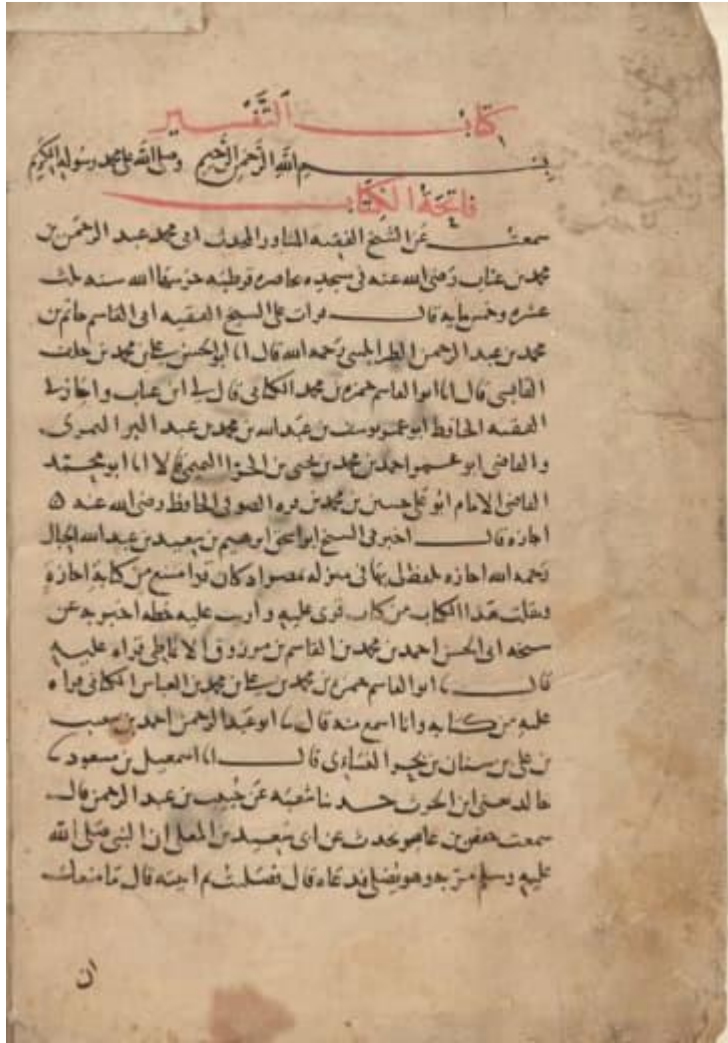 كتاب التفسير
بسم الله الرحمن الرحيم وصلى الله على محمد رسوله الكريم
فاتحة الكتاب
سمعت عن الشيخ الفقيه المشاور المحدث ابى محمد عبد الرحمن بن
محمد بن عتاب رضى الله عنه فى مسجده بحاضرة قرطبة حرسها الله سنه ثلث
عشره وخمس مايه قال قرات على الشيخ الفقيه ابى القاسم حاتم بن
محمد بن عبد الرحمن الطرابلسى رحمه الله قال انا ابو الحسن على بن محمد بن خلف
القابسى قال انا ابو القاسم حمزه بن محمد الكنانى قال لى ابن عتاب واجازنى
الفقيه الحافظ ابو عمر يوسف بن عبد الله بن محمد بن عبد البر النمرى
والقاضى ابو عمر احمد بن محمد بن يحيى بن الحذا التميمى قالا انا ابو محمد
القاضى الامام ابو على حسين بن محمد بن فيره الصوفى الحافظ رضى الله عنه
اجازه قال اخبرنى الشيخ ابو اسحق ابرهيم بن سعيد بن عبد الله الحبال
رحمه الله اجازه بلفظ لى بها فى منزله بمصر وانه كان قد امتنع من كتابة اجازة
ونقلت هذا الكتاب من كتاب قرى عليه ورايت عليه خطه اخبر به عن
شيخه ابى الحسن احمد بن محمد بن القاسم بن مرزوق الانماطى قراه عليه
قال ابو القاسم حمزه بن محمد بن على بن محمد بن العباس الكنانى قراه
عليه من كتابه وانا اسمع منه قال ابو عبد الرحمن احمد بن شعيب
بن على بن سنان بن بحر النساى قال انا اسمعيل بن مسعود
خالد يعنى ابن الحرث حدثنا شعبه عن خبيب بن عبد الرحمن قال
سمعت حفص بن عاصم يحدث عن ابى سعيد بن المعلى ان النبى صلى الله
عليه وسلم مر به وهو يصلى فدعاه قال فصليت ثم اتيته قال ما منعك
ان